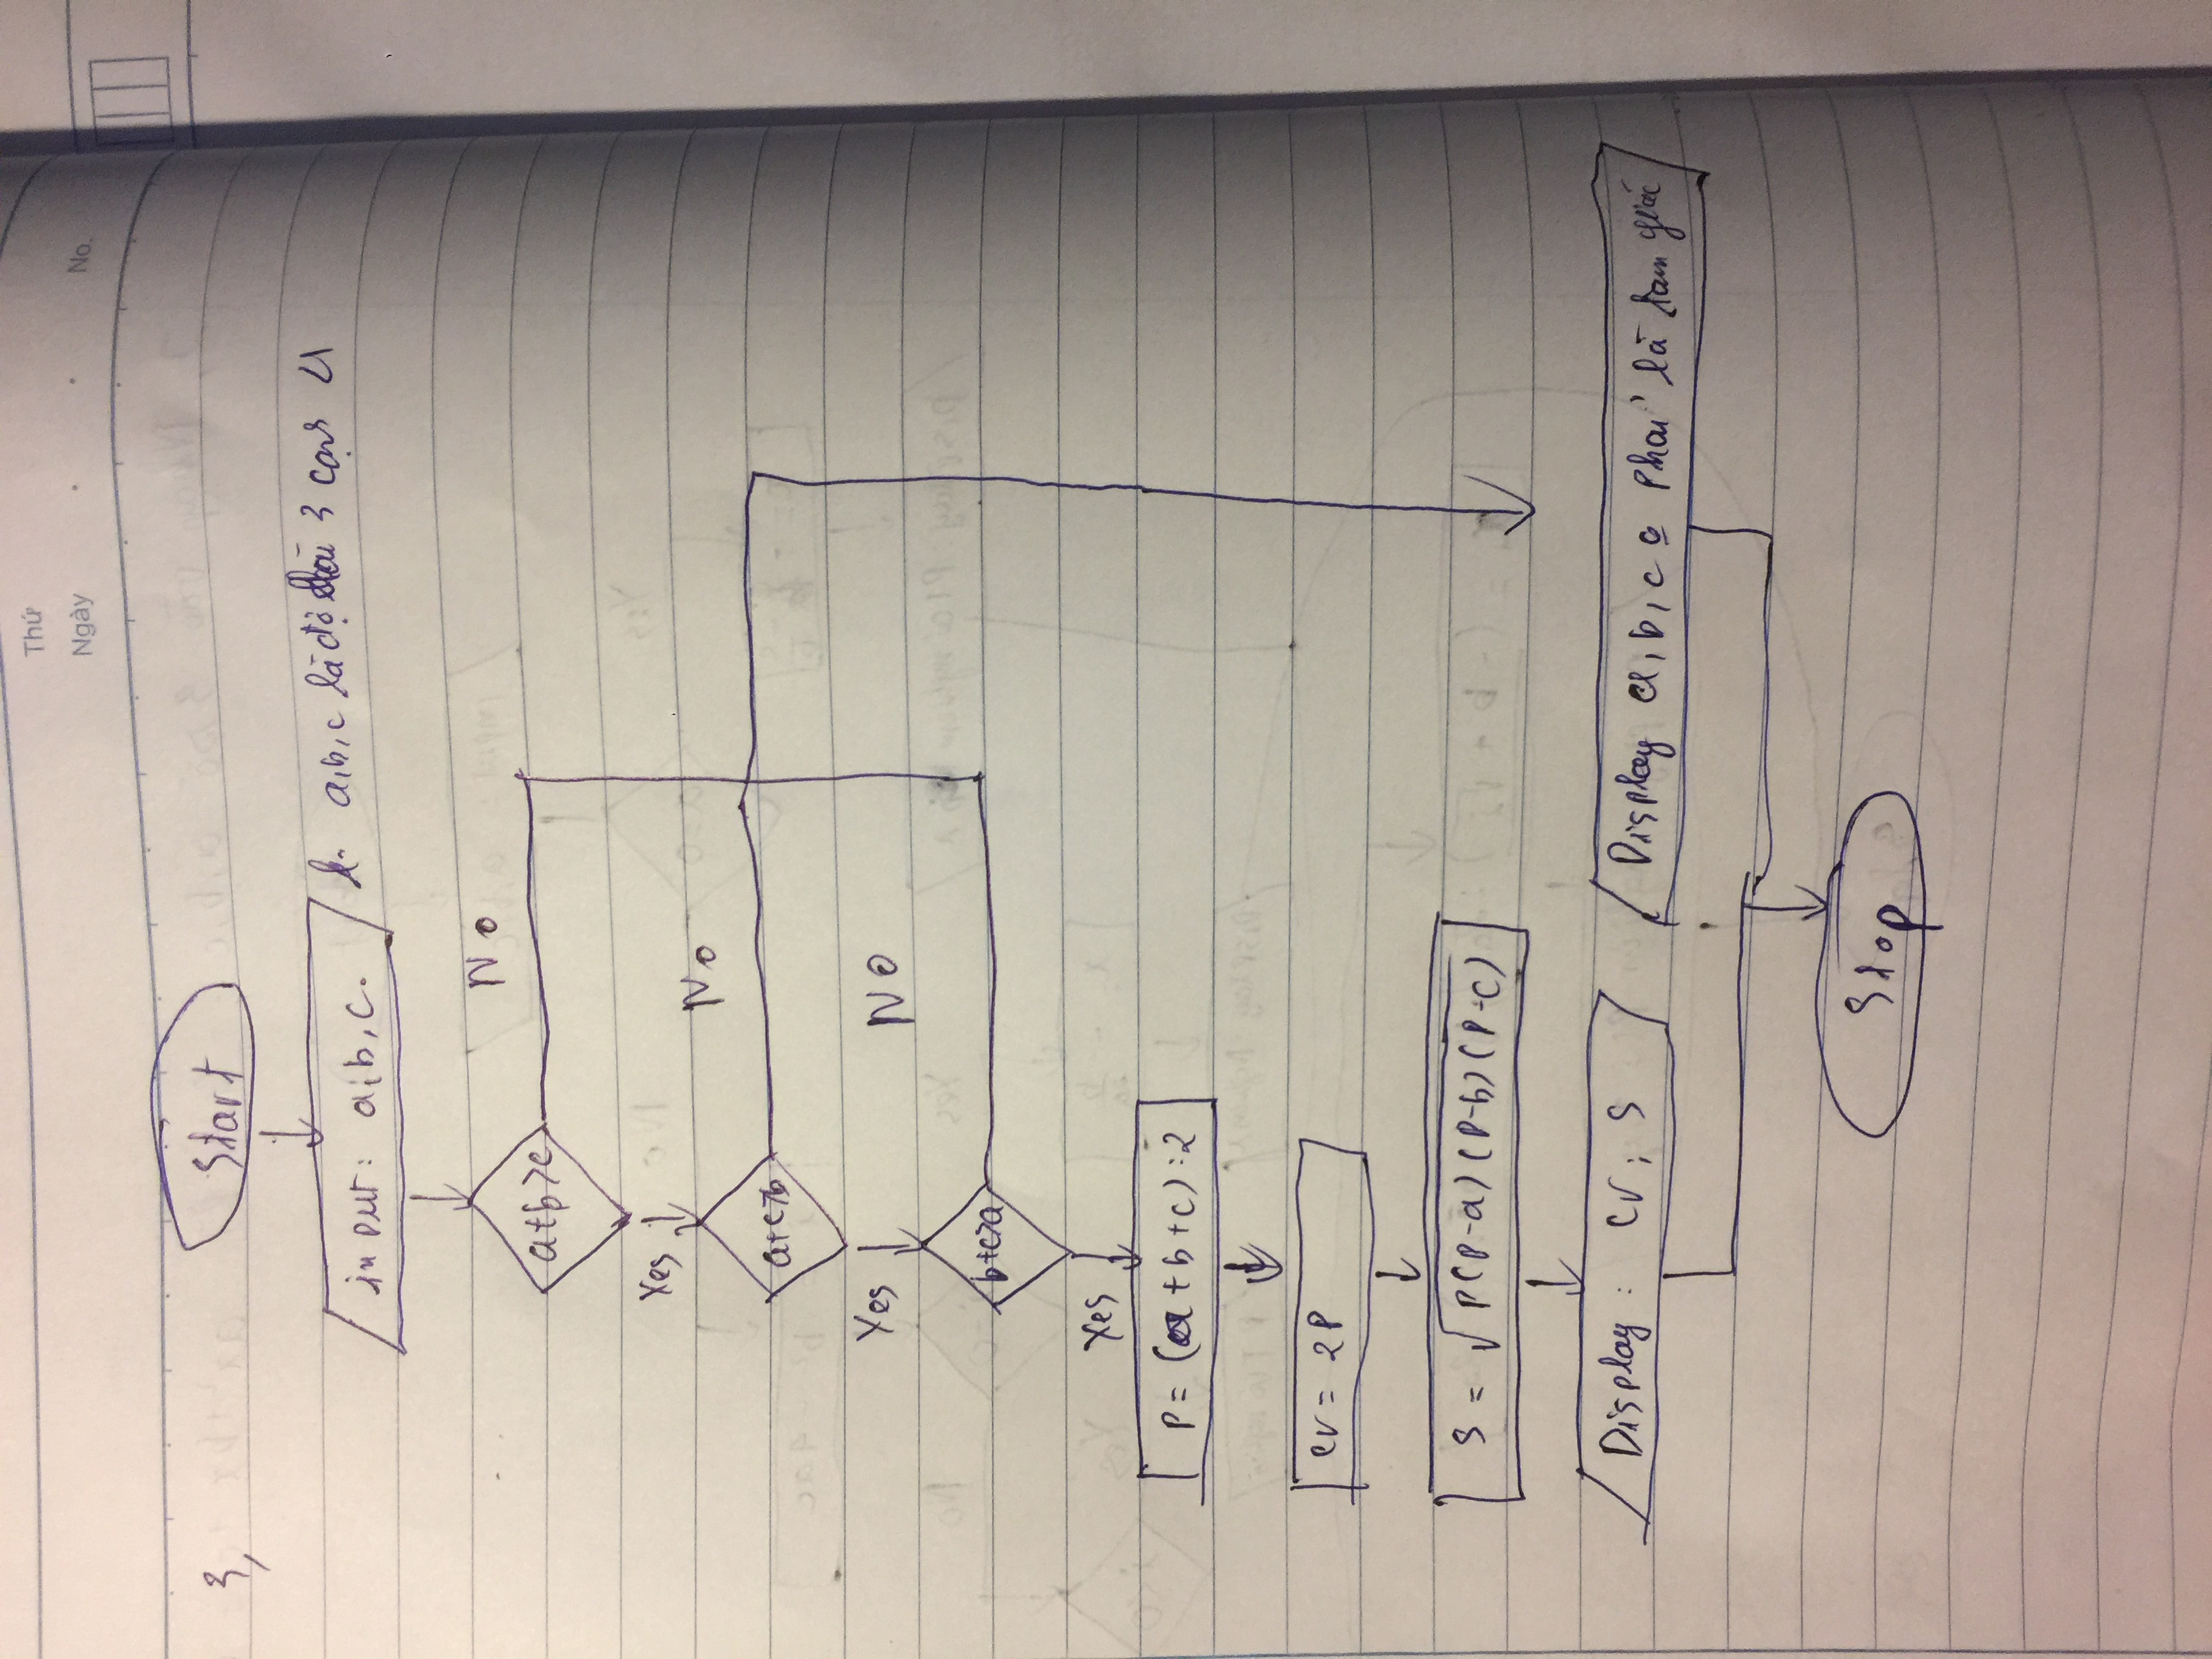 Thứ
Ngày
No.
3,
Start
input: a, b, c.
a, b, c là độ dài 3 cạnh
No
a+b>c
Yes
No
a+c>b
Yes
NO
b+c>a
Yes
P = (a + b + c) : 2
cv = 2P
S = √P(P-a)(P-b)(P-c)
Display: cv; S
Display a, b, c o phải là tam giác
Stop